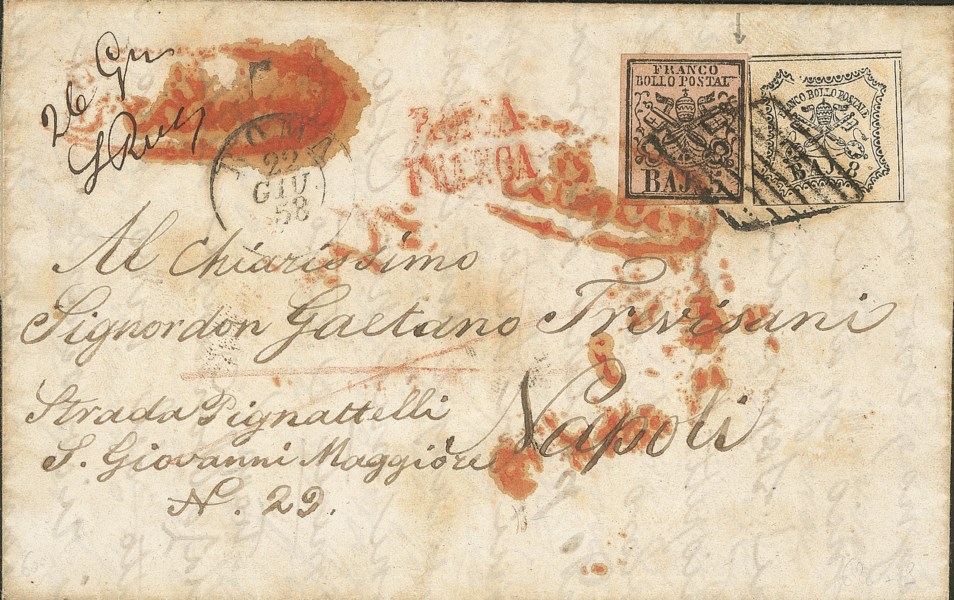 26 Giu
ROMA
22
GIU
58
FRANCA
FRANCO
BOLLO POSTAL
BAJ. 5
FRANCO BOLLO POSTAL
BAJ. 8
Al Chiarissimo
Signordon Gaetano Trevisani
Strada Pignattelli
S. Giovanni Maggiore
N. 29.
Napoli